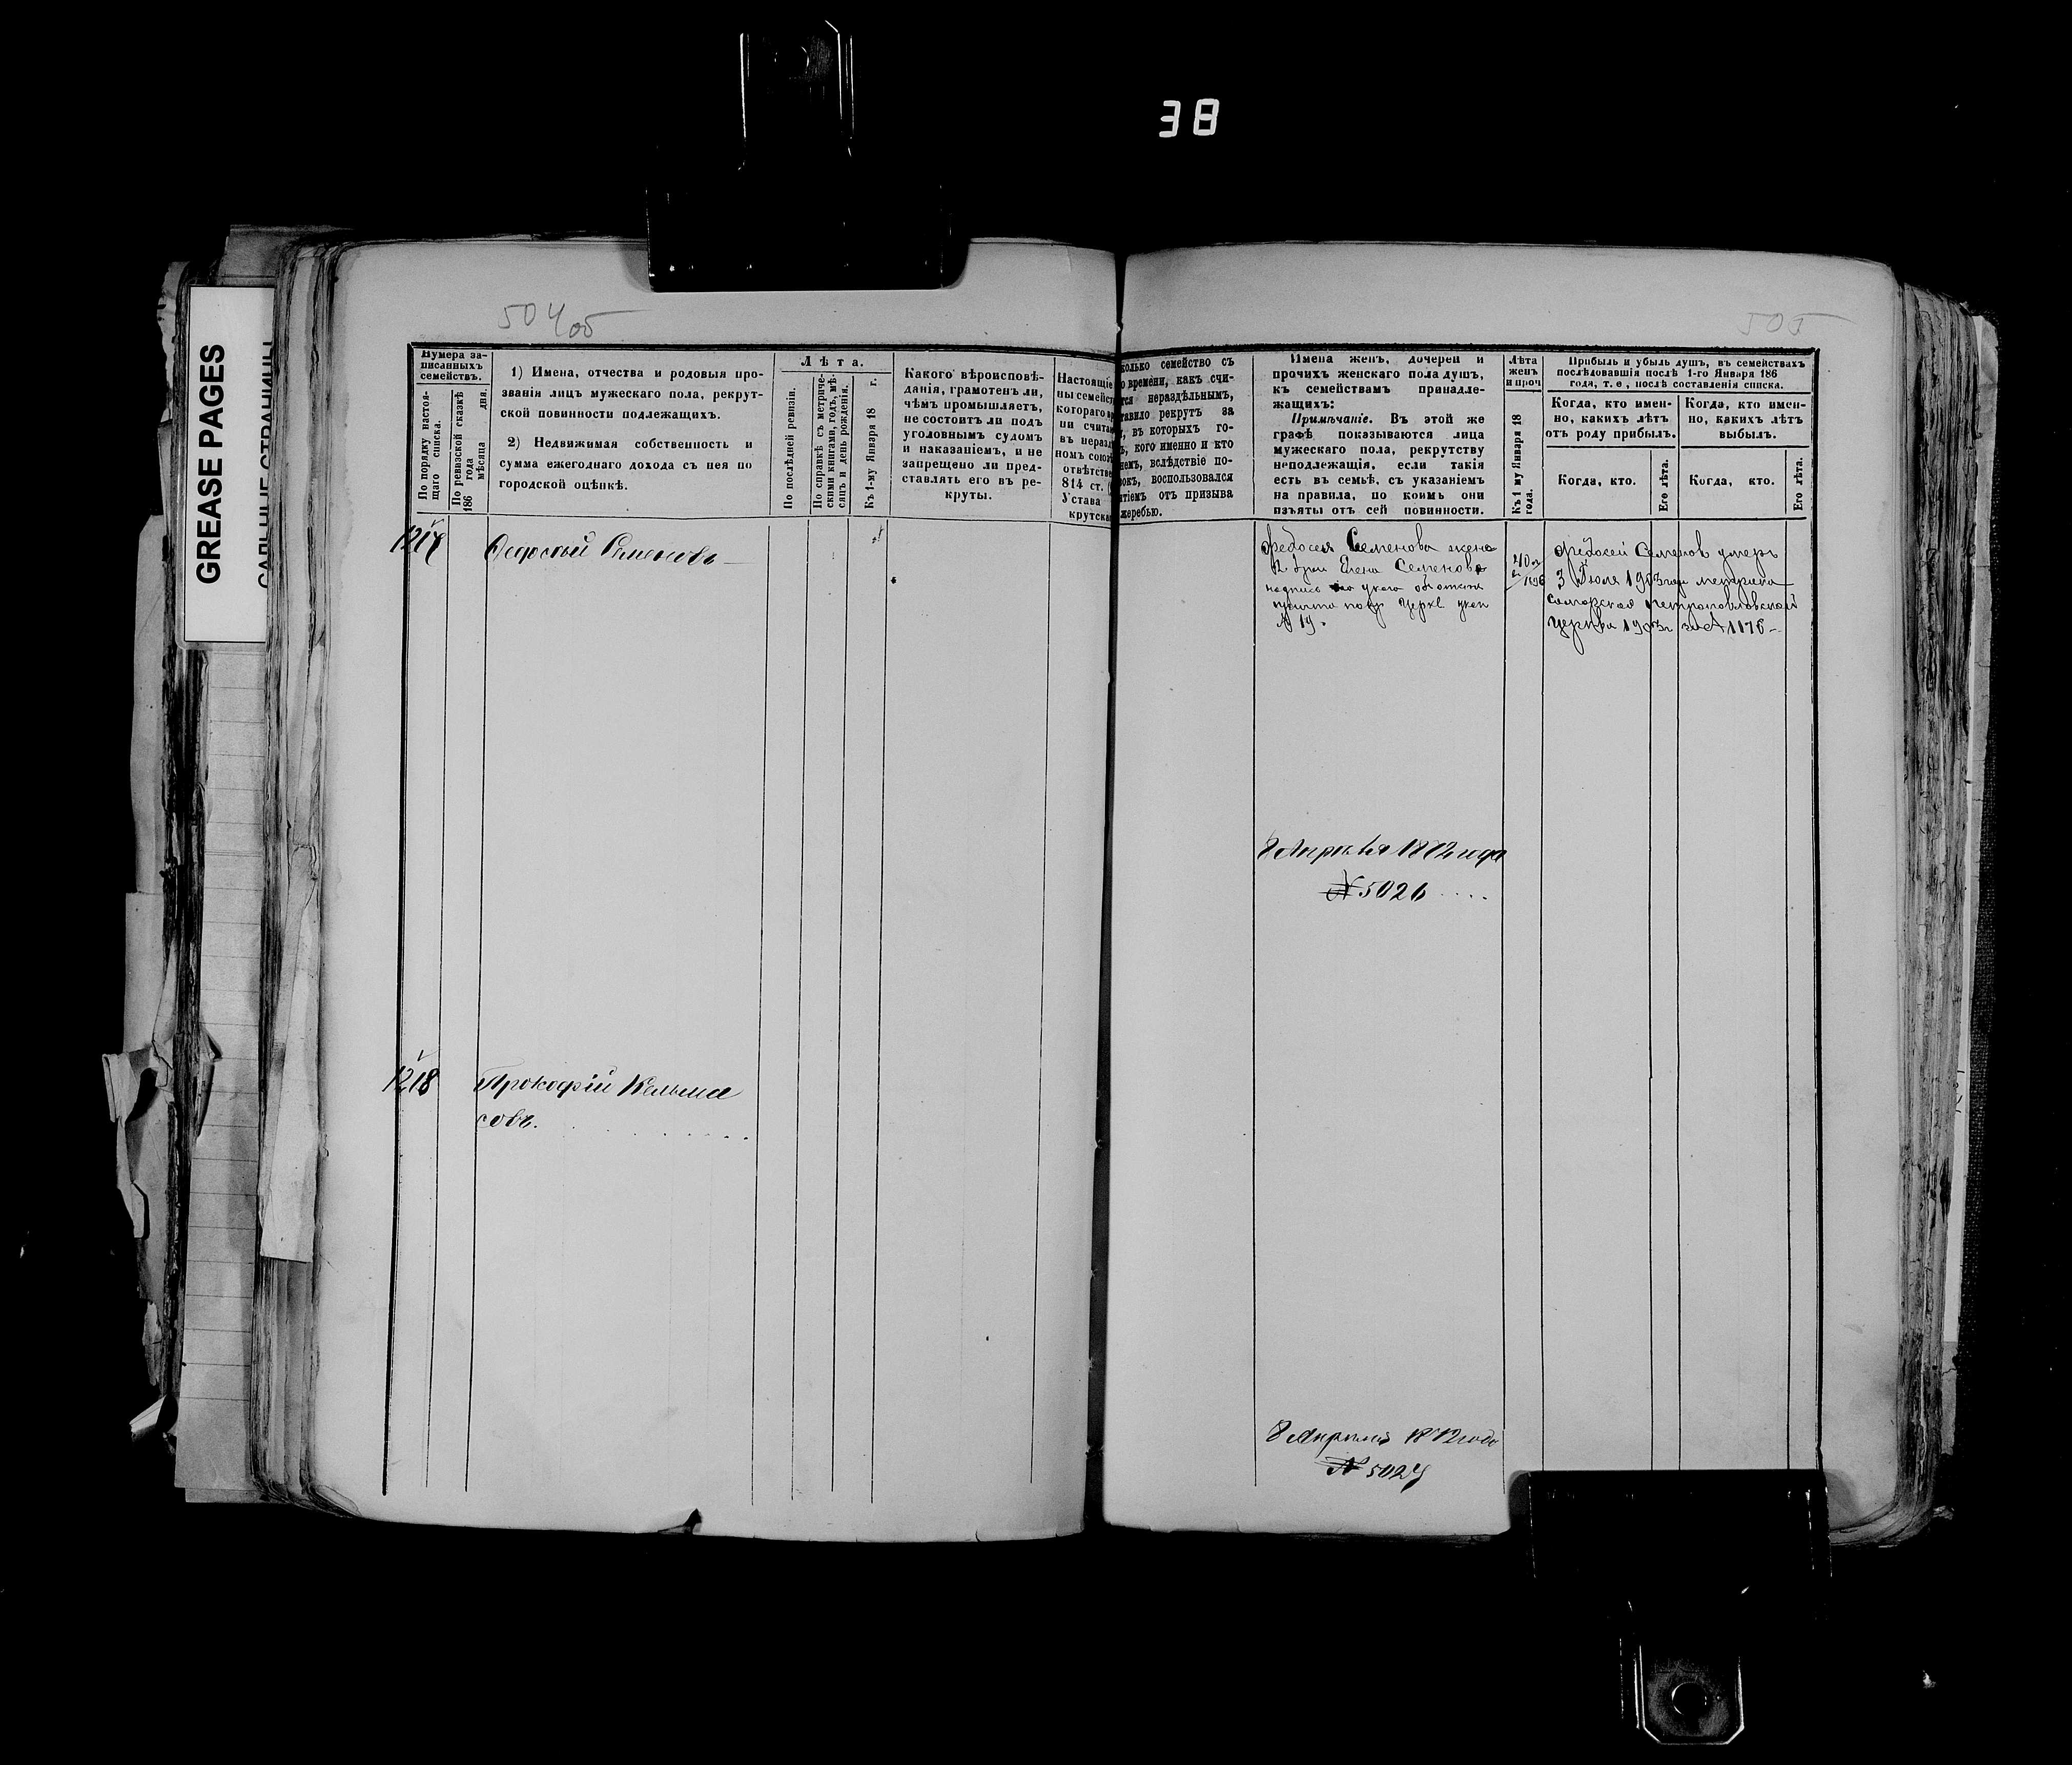 38
GREASE PAGES
504 об
505
Нумера за-
писанныхъ
семействъ.
По порядку настоя-
щаго списка.
По ревизской сказкѣ
186 года
мѣсяца дня.
1) Имена, отчества и родовыя про-
званія лицъ мужескаго пола, рекрут-
ской повинности подлежащихъ.
2) Недвижимая собственность и
сумма ежегоднаго дохода съ нея по
городской оцѣнкѣ.
Лѣта.
По послѣдней ревизіи.
По справкѣ съ метриче-
скими книгами, годъ, мѣ-
сяцъ и день рожденія.
Къ 1-му Января 18 г.
Какого вѣроисповѣ-
данія, грамотенъ ли,
чѣмъ промышляетъ,
не состоитъ ли подъ
уголовнымъ судомъ
и наказаніемъ, и не
запрещено ли пред-
ставлять его въ ре-
круты.
Настоящіе
ны семейст
котораго вр
ни счита
въ неразд
номъ союз
отвѣтстве
814 ст. (
Устава
крутска
колько семейство съ
о времени, какъ счи-
тся нераздѣльнымъ,
тавило рекрутъ за
, въ которыхъ го-
ъ, кого именно и кто
немъ, вслѣдствіе по-
рокъ, воспользовался
тіемъ отъ призыва
жеребью.
Имена женъ, дочерей и
прочихъ женскаго пола душъ,
къ семействамъ принадле-
жащихъ:
Примѣчаніе. Въ этой же
графѣ показываются лица
мужескаго пола, рекрутству
неподлежащія, если такія
есть въ семьѣ, съ указаніемъ
на правила, по коимъ они
изъяты отъ сей повинности.
Лѣта
женъ
и проч.
Къ 1 му Января 18
года.
Прибыль и убыль душъ, въ семействахъ
послѣдовавшія послѣ 1-го Января 186
года, т. е., послѣ составленія списка.
Когда, кто имен-
но, какихъ лѣтъ
отъ роду прибылъ.
Когда, кто.
Его лѣта.
Когда, кто имен-
но, какихъ лѣтъ
выбылъ.
Когда, кто.
Его лѣта.
1217
Федосѣй Семеновъ
Федосея Семенова жена
Елена Семенова
№ 19.
40
1896
Федосей Семенов умеръ
3 Июля 1903 года метрика
самарская петропавловской
церкви 1903 г за № 1176
8 Апрѣля 1872 года
№ 5026
1218
Прокофій Кельма
совъ.
8 Апрѣля 1872 года
№ 5027